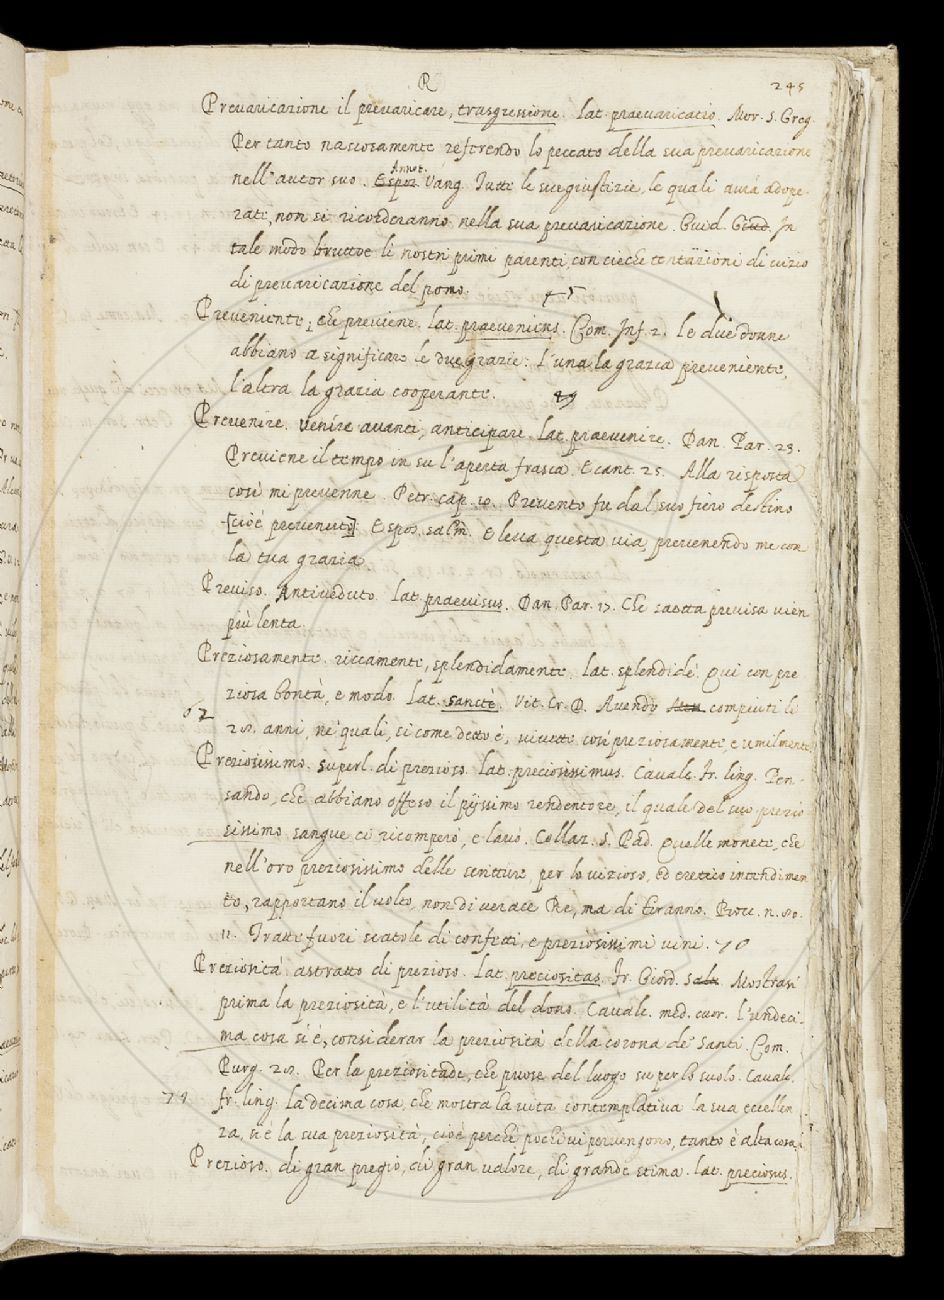 R
245
Prevaricazione il prevaricare, trasgressione. lat. praevaricatio. Mor. S. Greg.
Per tanto nascosamente referendo lo peccato della sua prevaricazione
Annot.
nell'autor suo. Espos. Vang. Tutte le sue giustizie, le quali avrà adope-
rate, non si ricorderanno nella sua prevaricazione. Guid. Giud. In
tale modo bruttoe li nostri primi parenti, con cieche tentazioni di vizio
di prevaricazione del pomo.
45
Preveniente, che previene. lat. praeveniens. Com. Inf. 2. le due donne
abbiano a significare le due grazie: l'una la grazia preveniente,
l'altra la grazia cooperante.
49
Prevenire. Venire avanti, anticipare. lat. praevenire. Dan. Par. 23.
Previene il tempo in su l'aperta frasca. E cant. 25. Alla risposta
così mi prevenne. Petr. cap. 10. Prevento fu dal suo fiero destino
[cioè prevenuto]. Espos. salm. E leva questa via, prevenendo me con
la tua grazia
Previso. Antiveduto. lat. praevisus. Dan. Par. 17. Che saetta previsa vien
più lenta.
Preziosamente. riccamente, splendidamente. lat. splendidè. Qui con pre
ziosa bontà, e modo. lat. sanctè. Vit. Cr. D. Avendo compiuti li
62
28. anni, ne' quali, sì come detto è, vivette così preziosamente, e umilmente
Preziosissimo. superl. di prezioso. lat. preciosissimus. Cavalc. fr. ling. Pen-
sando, che abbiano offeso il pijssimo rendentore, il quale del suo prezio
sissimo sangue ci ricomperò, e lavò. Collaz. S. Pad. Quelle monete, che
nell'oro preziosissimo delle scritture, per lo vizioso, ed eretico intendimen
to, rapportano il volto, non di verace Re, ma di tiranno. Bocc. n. 80.
11. Tratte fuori scatole di confetti, e preziosissimi vini.
70
Preziosità. astratto di prezioso. lat. preciositas. Fr. Giord. Salv. Mostrasi
prima la preziosità, e l'utilità del dono. Cavalc. med. cuor. l'undeci-
ma cosa si è, considerar la preziosità della corona de' Santi. Com.
Purg. 28. Per la preziositade, che puose del luogo su per lo suolo. Cavalc.
fr. ling. la decima cosa, che mostra la vita contemplativa la sua eccellen
za, si è la sua preziosità, cioè perchè pochi vi pervengono, tanto è alta cosa.
Prezioso. di gran pregio, di gran valore, di grande stima. lat. preciosus.